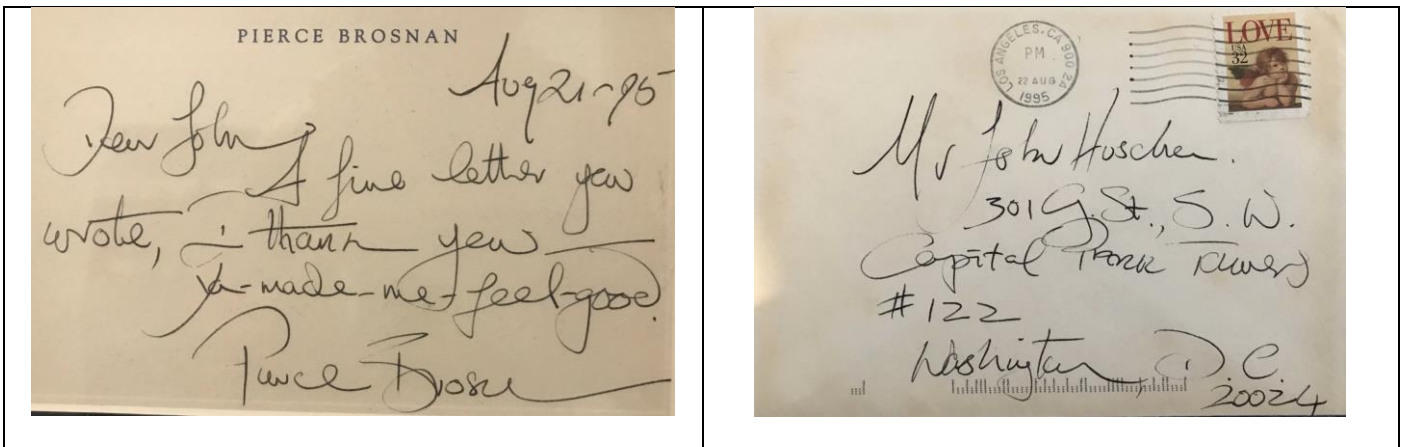 PIERCE BROSNAN
Aug 21-95
Dear John
A fine letter you
wrote, i thank you
Ya-made-me-feel-good.
Pierce Brosn
LOS ANGELES, CA 900 24
PM
22 AUG
1995
LOVE
USA
32
Mr John Huschen.
301 G. St., S. W.
Capital Park Towers
#122
Washington, D. C.
20024